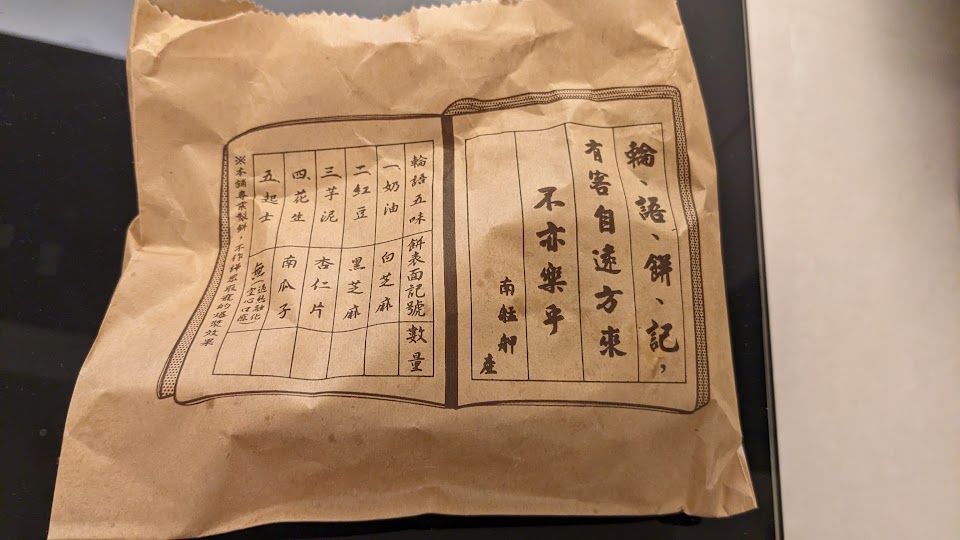 輪、語、餅、記,
有客自遠方來
不亦樂乎
南艋舺產
輪語五味 餅表面記號 數量
一、奶油 白芝麻
二、紅豆 黑芝麻
三、芋泥 杏仁片
四、花生 南瓜子
五、起士 無(遇熱融化空心口感)
※本舖專業製餅,不作譁眾取寵的爆漿效果